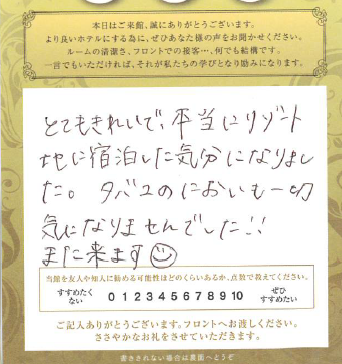 本日はご来館、誠にありがとうございます。
より良いホテルにする為に、ぜひあなた様の声をお聞かせください。
ルームの清潔さ、フロントでの接客…、何でも結構です。
一言でもいただければ、それが私たちの学びとなり励みになります。
とてもきれいで、本当にリゾート
地に宿泊した気分になりまし
た。タバコのにおいも一切
気になりませんでした!!
また来ます
当館を友人や知人に勧める可能性はどのくらいあるか、点数で教えてください。
すすめたく
ない
0 1 2 3 4 5 6 7 8 9 10
ぜひ
すすめたい
ご記入ありがとうございます。フロントへお渡しください。
ささやかなお礼をさせていただきます。
書ききれない場合は裏面へどうぞ